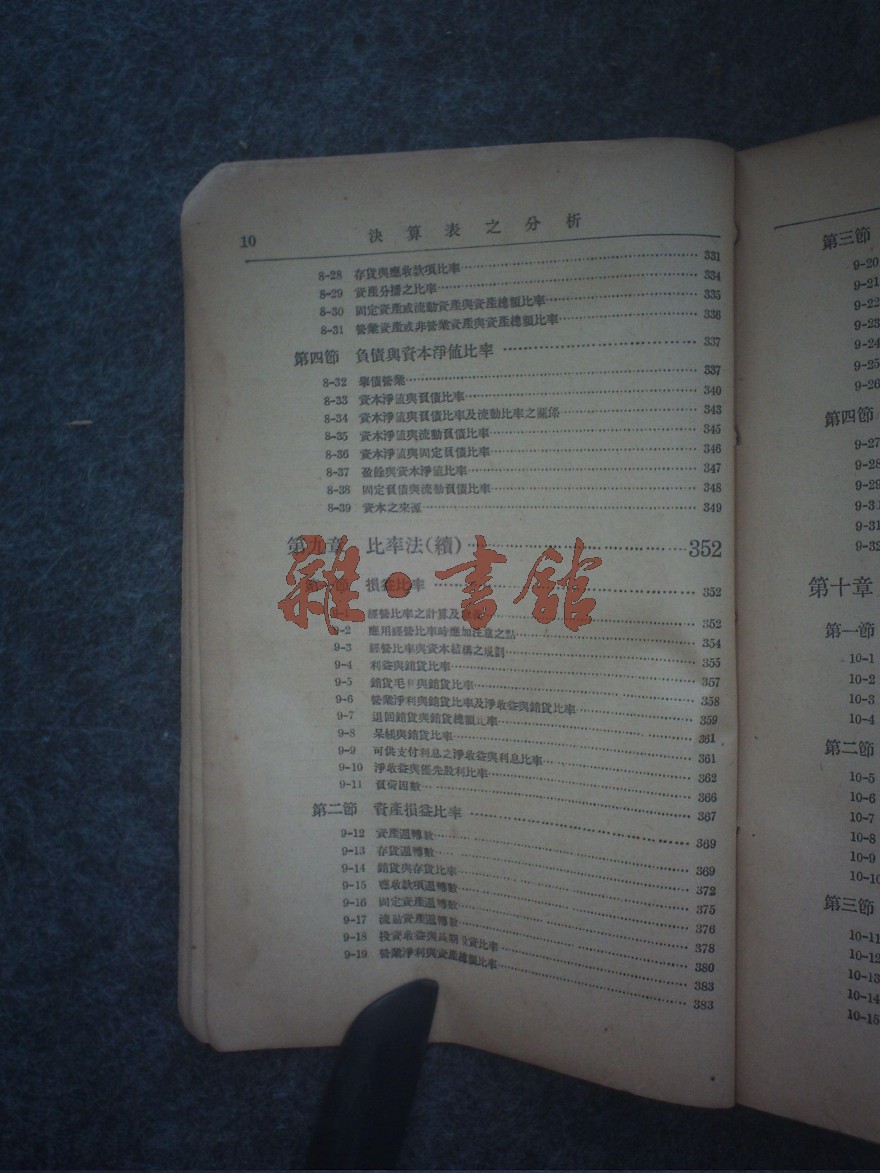 10 決算表之分析
8-28 存貨與應收款項比率 331
8-29 資產分播之比率 334
8-30 固定資產或流動資產與資產總額比率 335
8-31 營業資產或非營業資產與資產總額比率 336
第四節 負債與資本淨值比率 337
8-32 舉債營業 337
8-33 資本淨值與負債比率 340
8-34 資本淨值與負債比率及流動比率之關係 343
8-35 資本淨值與流動負債比率 345
8-36 資本淨值與固定負債比率 346
8-37 盈餘與資本淨值比率 347
8-38 固定負債與流動負債比率 348
8-39 資本之來源 349
第九章 比率法(續) 352
第一節 損益比率 352
9-1 經營比率之計算及 352
9-2 應用經營比率時應加注意之點 354
9-3 經營比率與資本結構之規劃 355
9-4 利益與銷貨比率 357
9-5 銷貨毛利與銷貨比率 358
9-6 營業淨利與銷貨比率及淨收益與銷貨比率 359
9-7 退回銷貨與銷貨總額比率 361
9-8 呆帳與銷貨比率 361
9-9 可供支付利息之淨收益與利息比率 362
9-10 淨收益與優先股利比率 366
9-11 負荷因數 367
第二節 資產損益比率 369
9-12 資產週轉數 369
9-13 存貨週轉數 372
9-14 銷貨與存貨比率 375
9-15 應收款項週轉數 376
9-16 固定資產週轉數 378
9-17 流動資產週轉數 380
9-18 投資收益與長期投資比率 383
9-19 營業淨利與資產總額比率 383
雜·書館
第三節
9-20
9-21
9-22
9-23
9-24
9-25
9-26
第四節
9-27
9-28
9-29
9-3
9-31
9-32
第十章
第一節
10-1
10-2
10-3
10-4
第二節
10-5
10-6
10-7
10-8
10-9
10-10
第三節
10-11
10-12
10-13
10-14
10-15